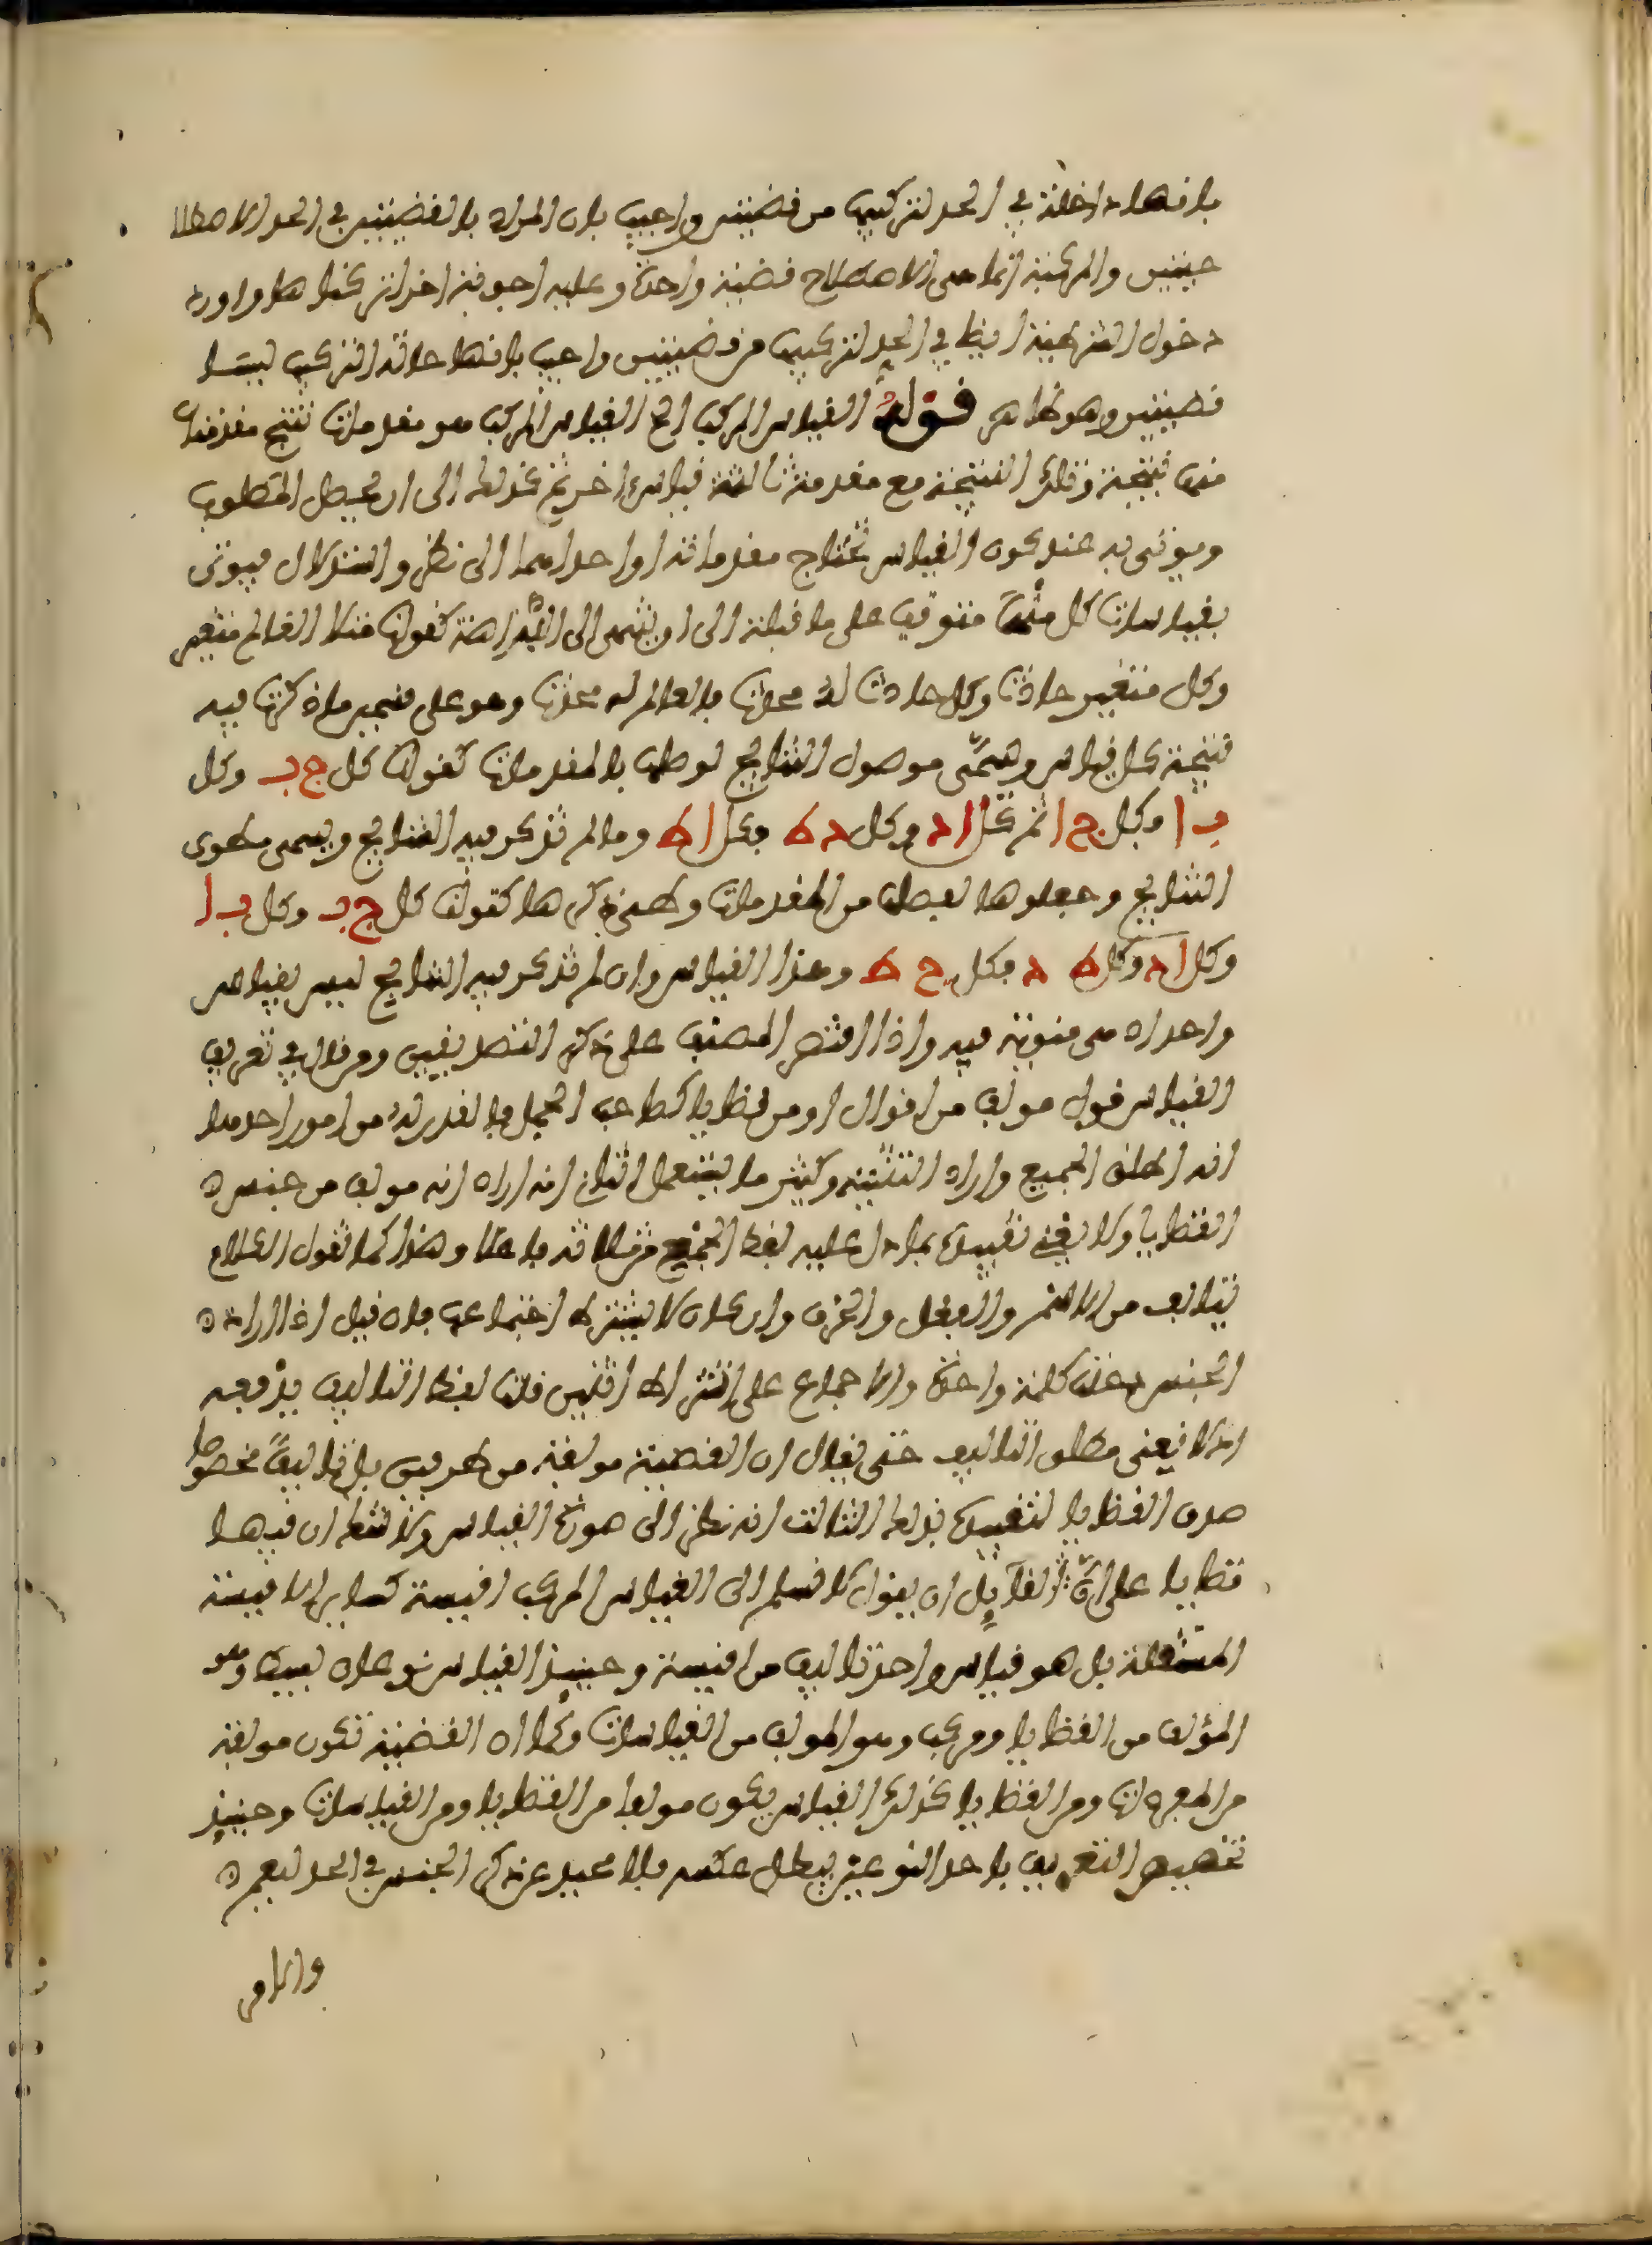 بانها داخلة في الحد لتركيبها من قضيتين واجيب بان المراد بالقضيتين في الحد الاصطلا
حيتين والمركبة انما هي الاصطلاح قضية واحدة وعليه اجوبة اخر تركناها واورد
دخول الشرطية ايضا في الحد لتركيبها من قضيتين واجيب بانها حالة التركيب ليستا
قضيتين وهو ظاهر قوله القياس المركب الخ القياس المركب هو مقدمات تنتج مقدمتان
منها نتيجة وتلك النتيجة مع مقدمة ثالثة قياس اخر ثم كذلك الى ان يحصل المطلوب
ويوتى به عند كون القياس تحتاج مقدماته او احداهما الى نظر واستدلال فيوتى
بقياسات كل منها متوقف على ما قبله الى ان ينتهى الى البداهة كقولنا مثلا العالم متغير
وكل متغير حادث وكل حادث له محدث فالعالم له محدث وهو على قسمين ما ذكرت فيه
نتيجة كل قياس ويسمى موصول النتايج لوصلها بالمقدمات كقولنا كل ج ب وكل
ب ا فكل ج ا ثم كل ا د وكل د ط فكل ا ط وما لم تذكر فيه النتايج ويسمى مطوى
النتايج وجعلوها لفصلها من المقدمات وطي ذكرها كقولنا كل ج ب وكل ب ا
وكل ا د وكل ط د فكل ج ط وهذا القياس وان لم تذكر فيه النتايج ليس بقياس
واحد اذ هى منوية فيه واذا اقتصر المصنف على ذكر التصديقين ومن قال في تعريف
القياس قول مولف من اقوال او من قضايا كصاحب الجمل فالقدر لهم من امور احدها
انه اطلق الجميع واراد التثنية وكثير ما يستعمل الثاني انه اراد انه مولف من جنس
القضايا ولا يعنى تقييده بما دل عليه لفظ الجمع من ثلاثة فاعلا وهذا كما تقول الكلام
يتالف من الاسم والفعل والحرف وان كان لا يشترط اجتماعها فان قيل اذا اراد
الجنس دخلت كلمة واحدة والاجماع على اشتراط اثنين قلنا لفظ التاليف يدفعه
اذ لا يعنى مطلق التاليف حتى يقال ان القضية مولفة من طرفين بل تاليفا مخصوصا
صدق القضايا لتقييده بذلك الثالث انه نظر الى صورة القياس ولا شك ان فيها
قضايا على ان القايل ان يقول لا نسلم ان القياس المركب اقيسة كساير الاقيسة
المستقلة بل هو قياس واحد تالف من اقيسة وحينيذ القياس نوعان بسيط وهو
المؤلف من القضايا ومركب وهو المولف من القياسات وكما ان القضية تكون مولفة
من المفردات ومن القضايا كذلك القياس يكون مولفا من القضايا ومن القياسات وحينيذ
تخصيص التعريف باحد النوعين يبطل عكسه فلا محيد عن ذكر الجنس في الحد ليعم